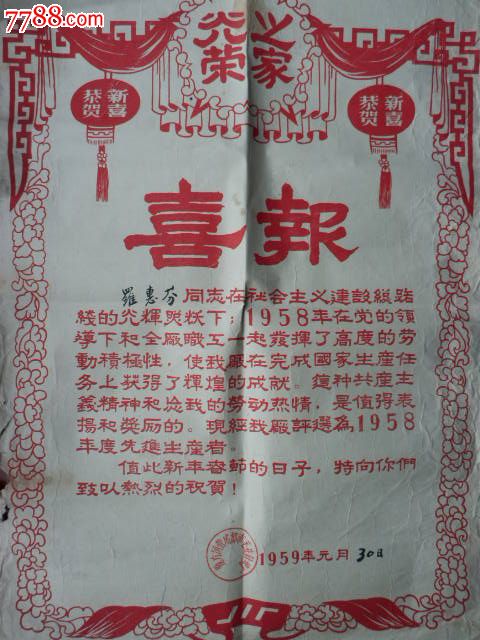 7788.com
光榮之家
恭賀新喜
恭賀新喜
喜報
羅惠芬同志在社会主义建設總路
綫的光輝照耀下；1958年在党的领
導下和全廠職工一起發揮了高度的劳
動積極性，使我廠在完成國家生產任
务上获得了輝煌的成就。這种共產主
義精神和忘我的劳动热情，是值得表
揚和獎励的。現經我廠評選為1958
年度先進生產者。
值此新年春節的日子，特向你們
致以熱烈的祝賀！
1959年元月30日